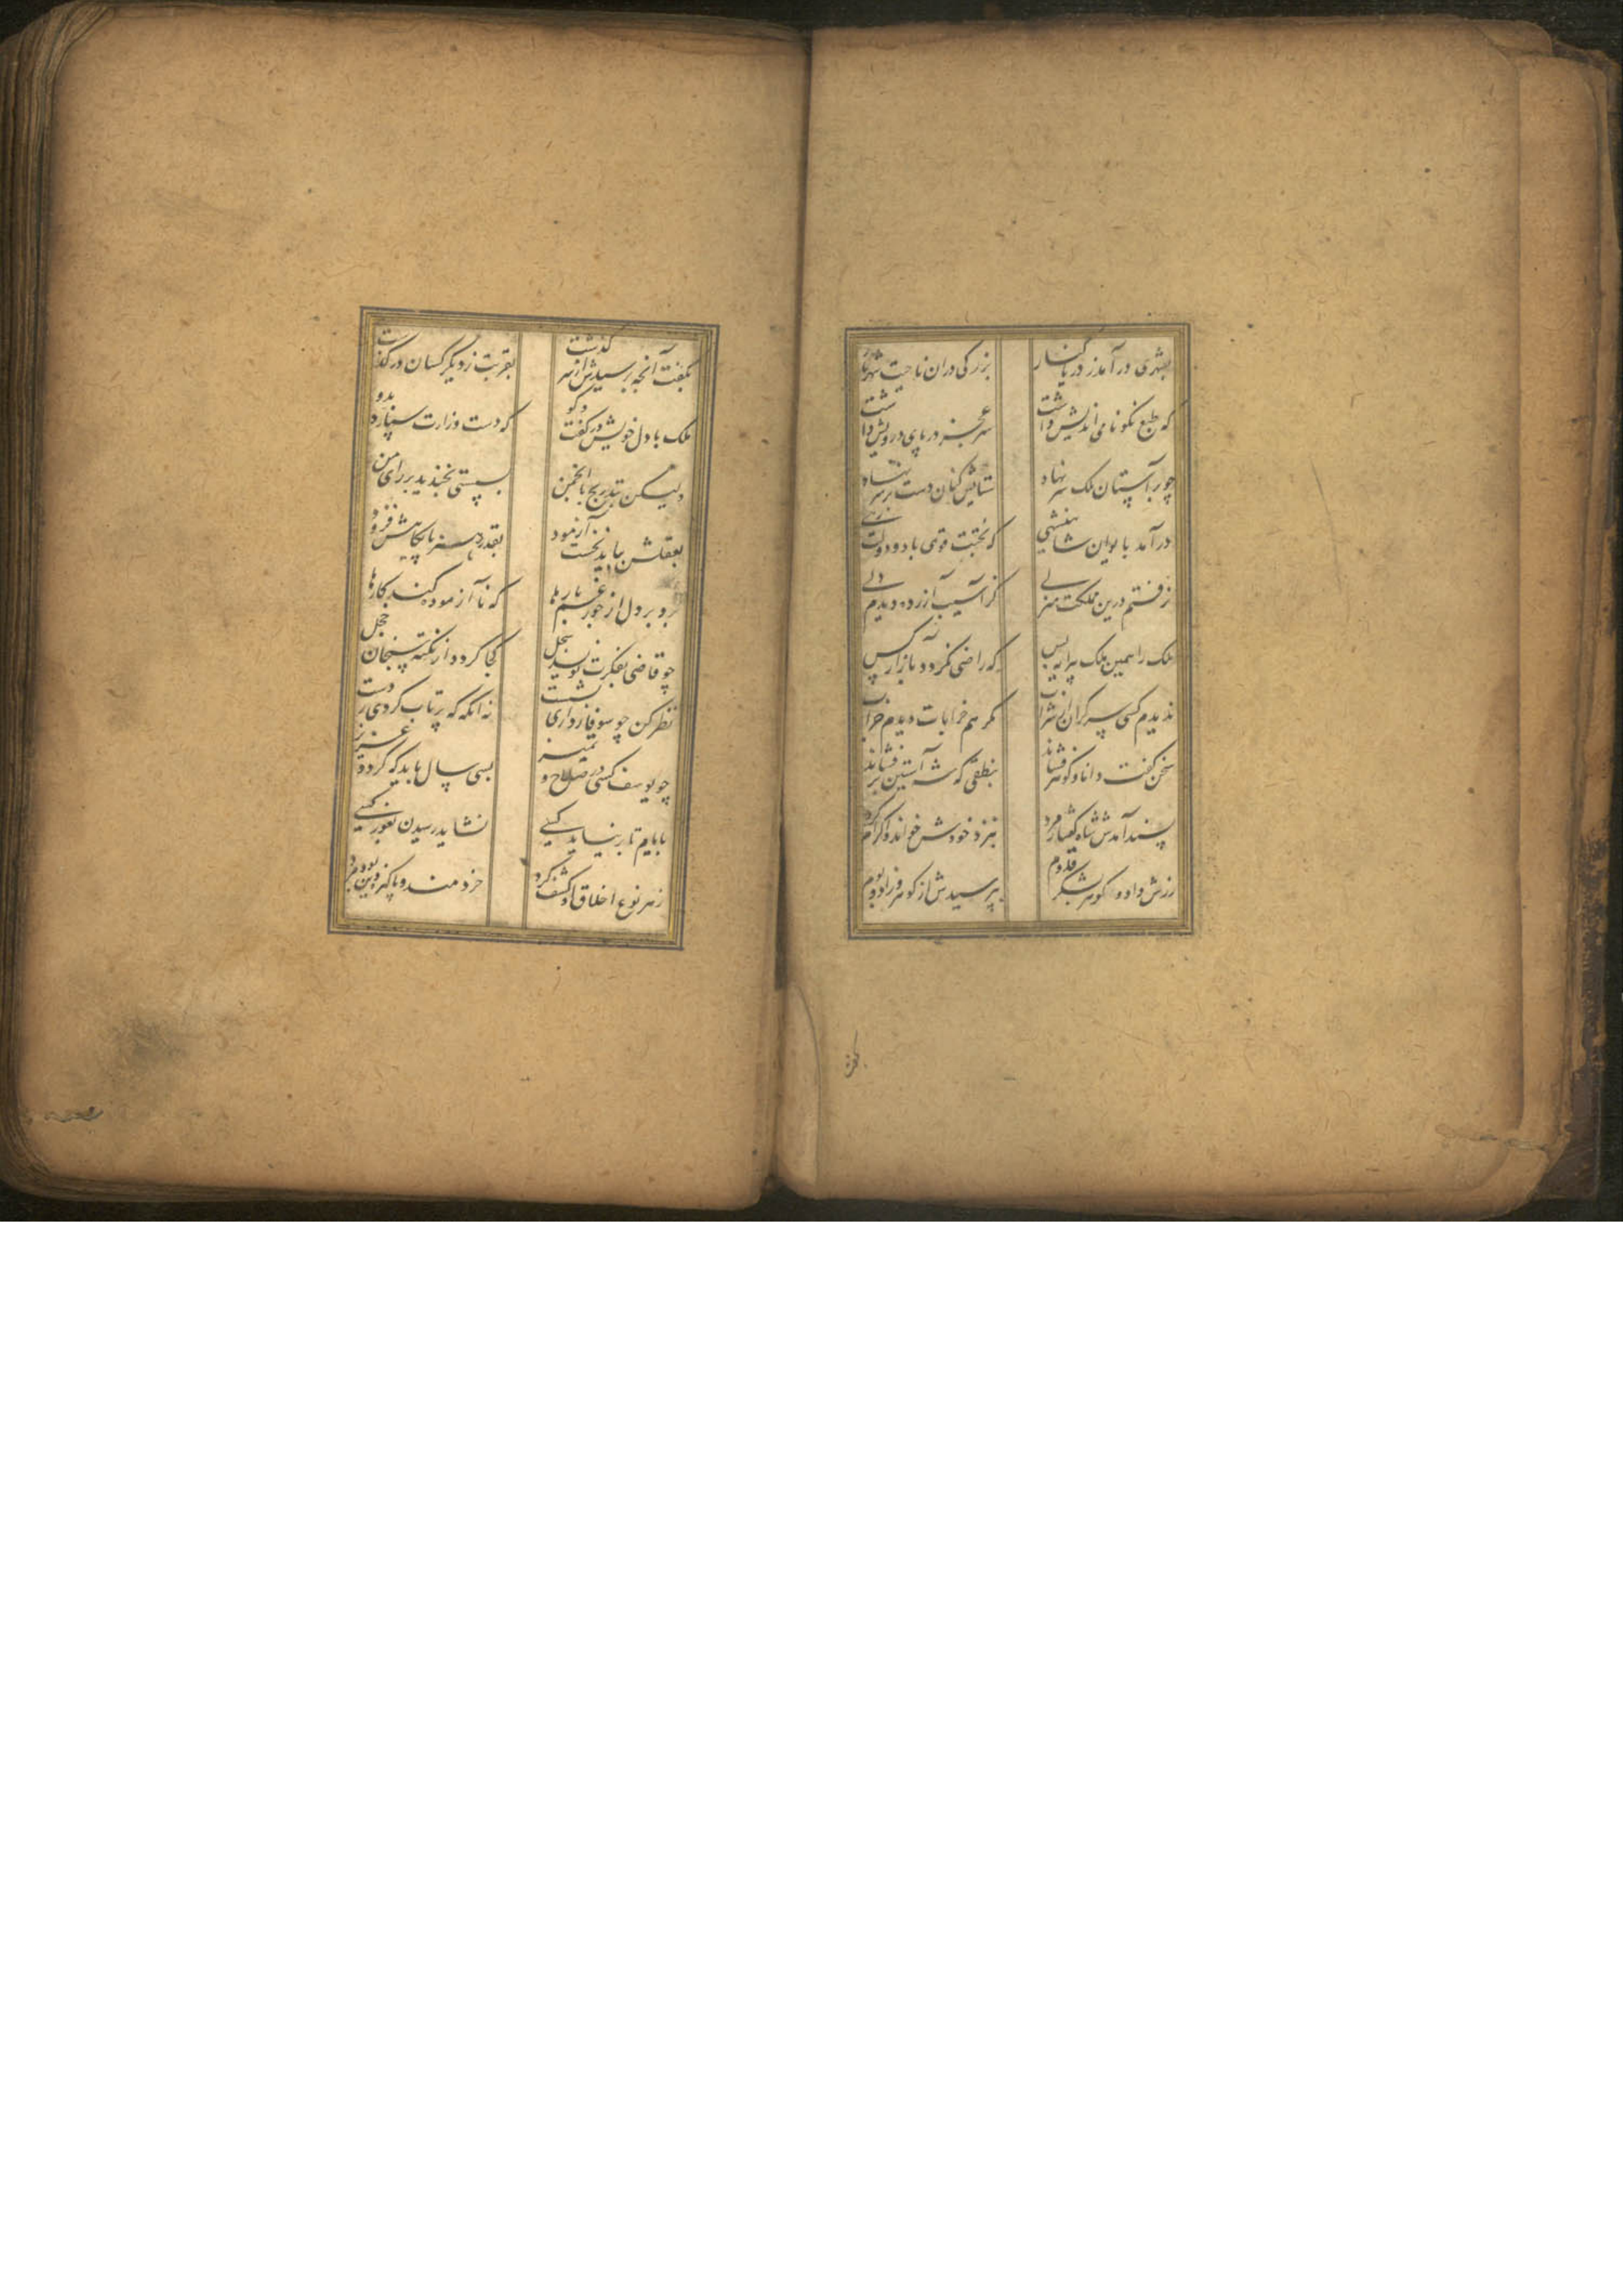 بشهری در آمد ز دریا کنار بزرگی دران ناحیت شهریار
که طبع نکو نامی اندیش داشت سر عجز در پای درویش داشت
چو بر آستان ملک سر نهاد ستایش کنان دست بر بر نهاد
در آمد بایوان شاهنشهی که بختت قوی باد و دولت رهی
نرفتم درین مملکت منزلی کز آسیب آزرده دیدم دلی
ملک را همین ملک پیرایه بس که راضی نکردد بآزار کس
ندیدم کسی سرکران از شراب مکر هم خرابات دیدم خراب
سخن کفت و دانا و کوهر فشاند بنطقی که شه آستین بر فشاند
پسند آمدش شاه کفتار مرد بنزد خودش خواند و اکرام کرد
زرش داد و کوهر بشکر قدوم بپرسیدش از کوهر و زاد بوم
بکفت آنچه پرسیدش از سر کذشت بقربت ز دیکر کسان در کذشت
ملک با دل خویش در کفت و کو که دست وزارت سپارد بدو
ولیکن بتدریج تا انجمن بسستی نخندند بر رای من
بعقلش بباید نخست آزمود بقدر هنر پایکاهش فزود
برد بر دل از جور غم بارها که نا آزموده کند کارها
چو قاضی بفکرت نویسد سجل کجا کردد از نکته سنجان خجل
نظر کن چو سوفار داری بشست نه آنکه که پرتاب کردی ز دست
چو یوسف کسی در صلاح و تمیز بسی سال باید که کردد عزیز
بایام تا بر نیاید کسی نشاید رسیدن بغور کسی
ز هر نوع اخلاق او کشف کرد خردمند و پاکیزه دین بود مرد